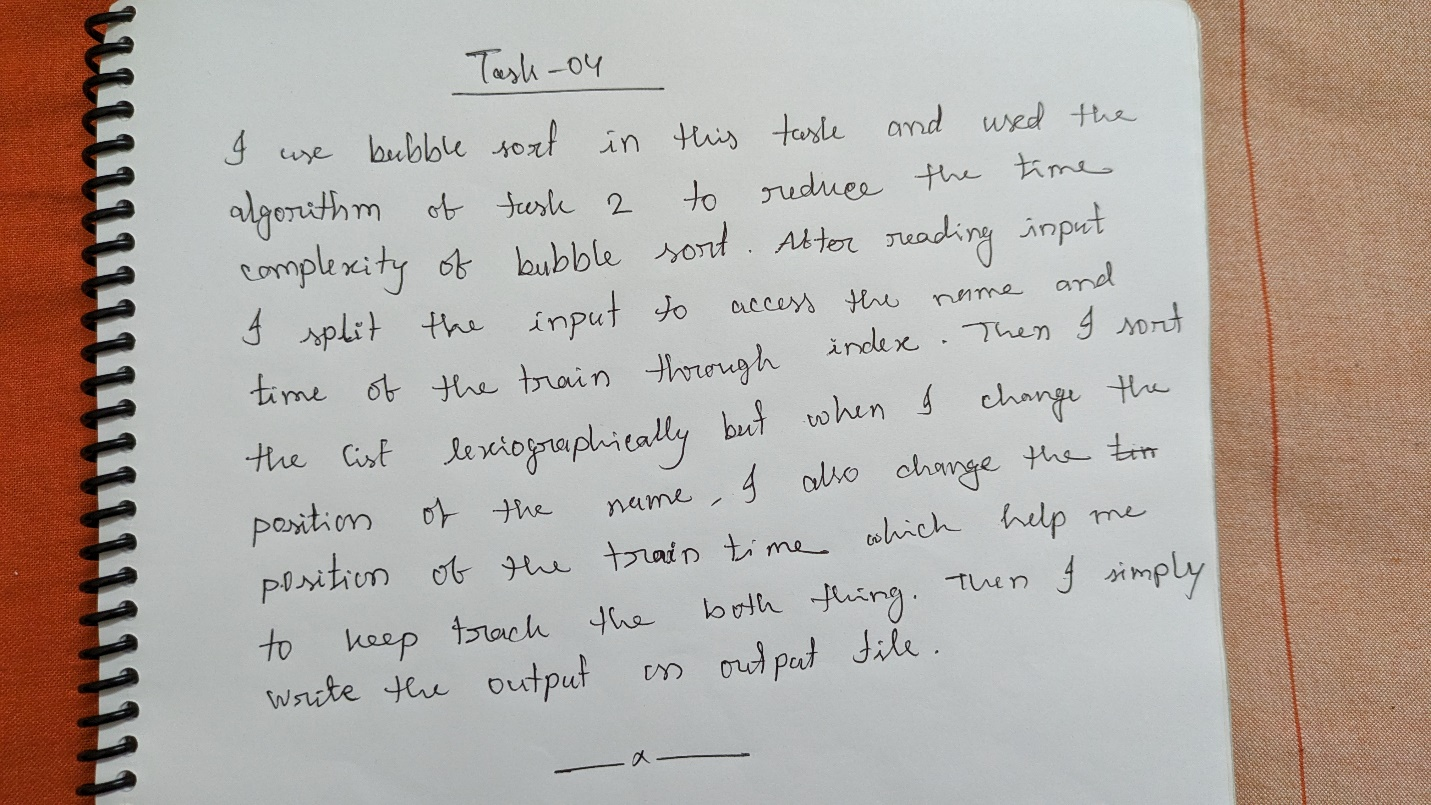 Task-04
I use bubble sort in this task and used the
algorithm of task 2 to reduce the time
complexity of bubble sort. After reading input
I split the input to access the name and
time of the train through index. Then I sort
the list lexiographically but when I change the
position of the name, I also change the tim
position of the train time which help me
to keep track the both thing. Then I simply
write the output in output file.